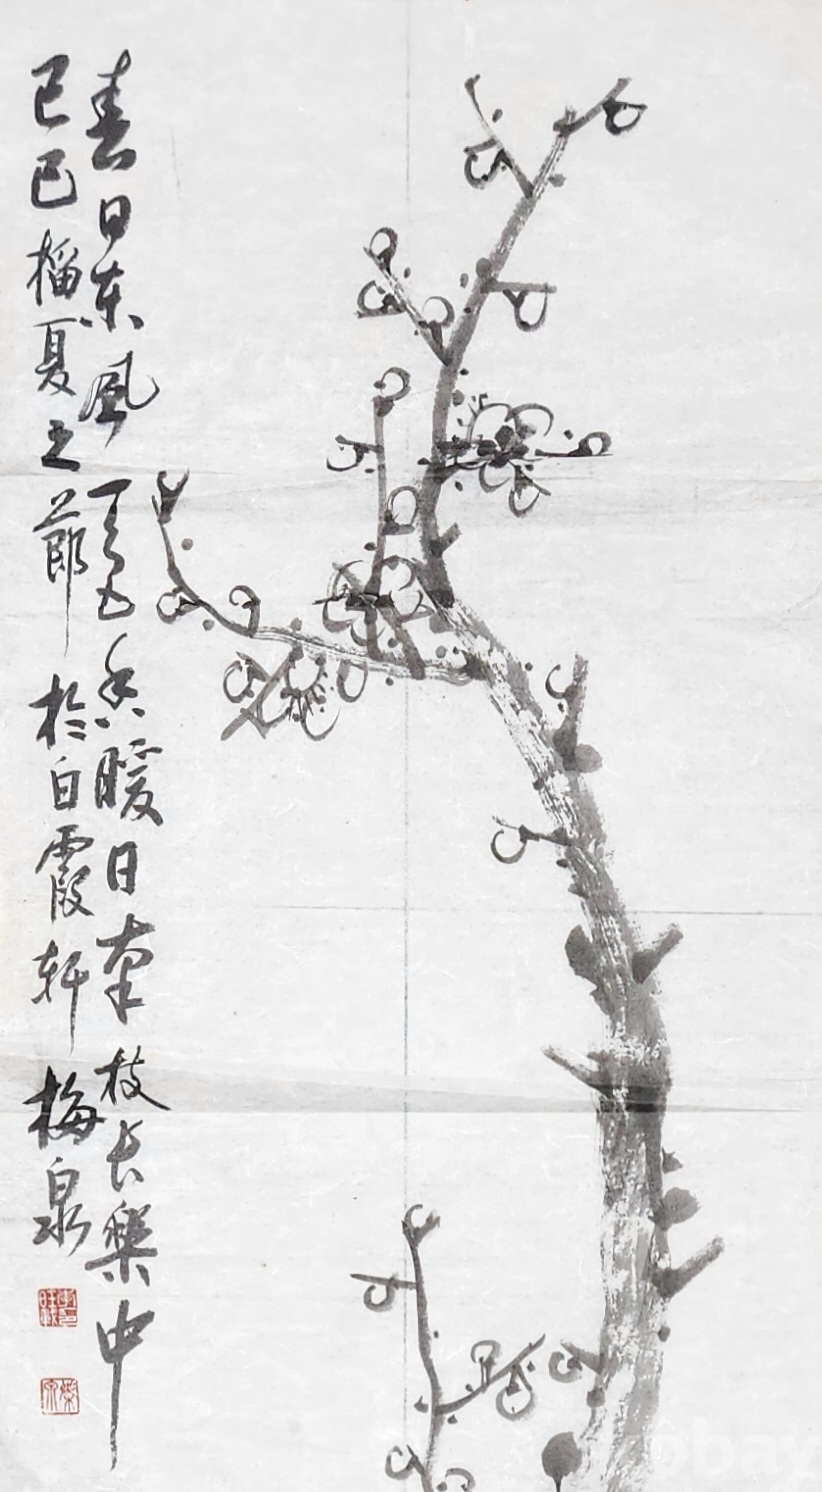 春日東風香暖日南枝長樂中
己巳榴夏之節於白霞軒 梅泉